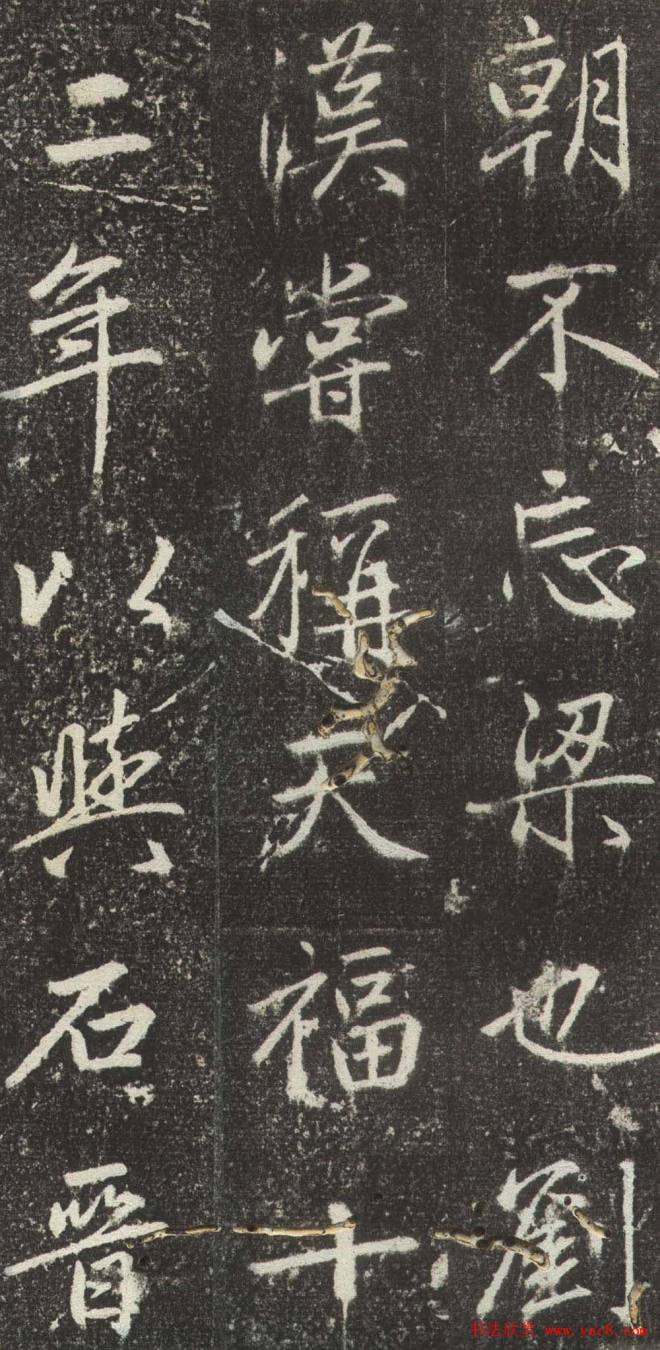 朝不忘梁也劉
漢嘗稱天福十
二年以其石晉
书法欣赏 www.yac8.com